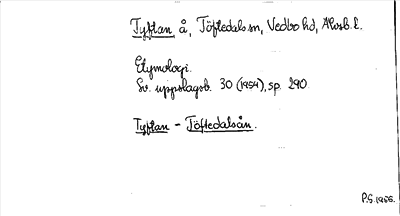 Tyftan å, Töftedals sn, Vedbo hd, Älvsb. l.
Etymologi.
Sv. uppslagsb. 30 (1954), sp. 290
Tyftan - Töftedalsån.
P.S. 1956.